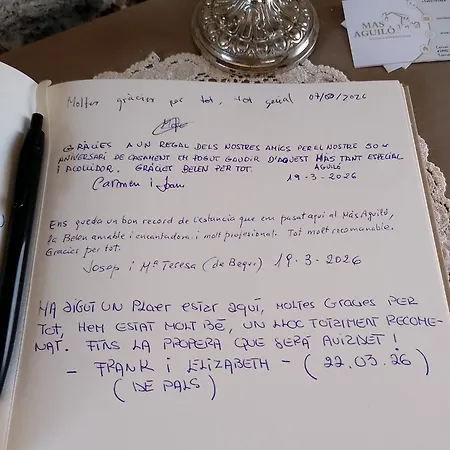 MAS
AGUILÓ
Moltes gràcies per tot, tot genial 07/03/2026
GRÀCIES A UN REGAL DELS NOSTRES AMICS PER EL NOSTRE 50 e
ANIVERSARI DE CASAMENT EM POGUT GAUDIR D'AQUEST MAS TANT ESPECIAL
I ACOLLIDOR. GRÀCIES BELEN PER TOT. AGUILÓ
Carmen i Joan 19-3-2026
Ens queda un bon record de l'estancia que em passat aquí al Mas Aguiló,
la Belen amable i encantadora i molt profesional. Tot molt recomanable.
Gracies per tot.
Josep i Mª Teresa (de Begur) 19-3-2026
HA SIGUT UN PLAER ESTAR AQUÍ, MOLTES GRACIES PER
TOT, HEM ESTAT MOLT BÉ, UN LLOC TOTALMENT RECOME-
NAT. FINS LA PROPERA QUE SERÀ AVIADET!
- FRANK i ELIZABETH - (22.03.26)
(DE PALS)